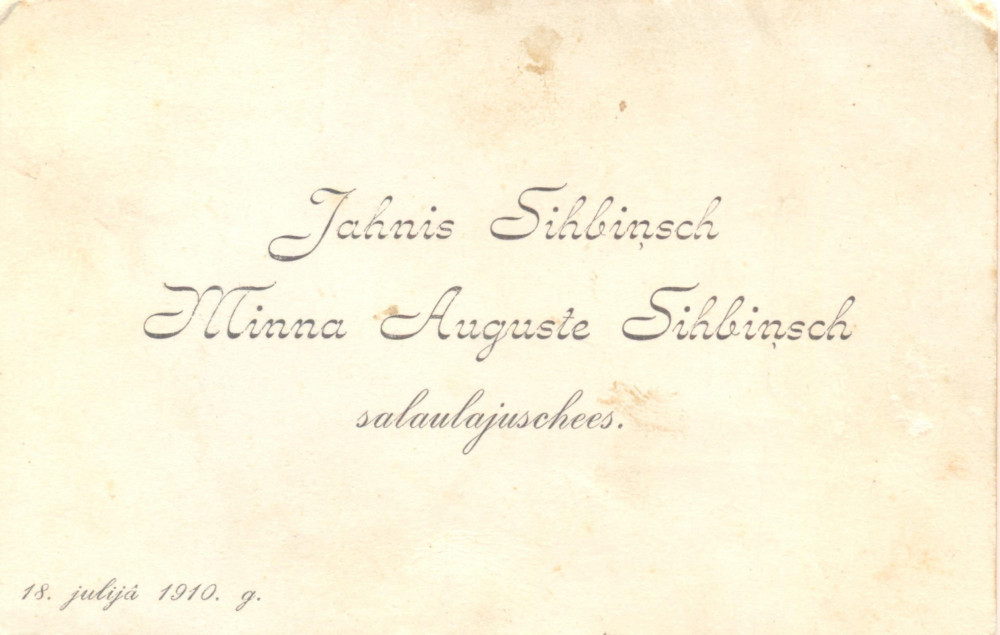 Jahnis Sihbiņsch
Minna Auguste Sihbiņsch
salaulajuschees.
18. julijâ 1910. g.